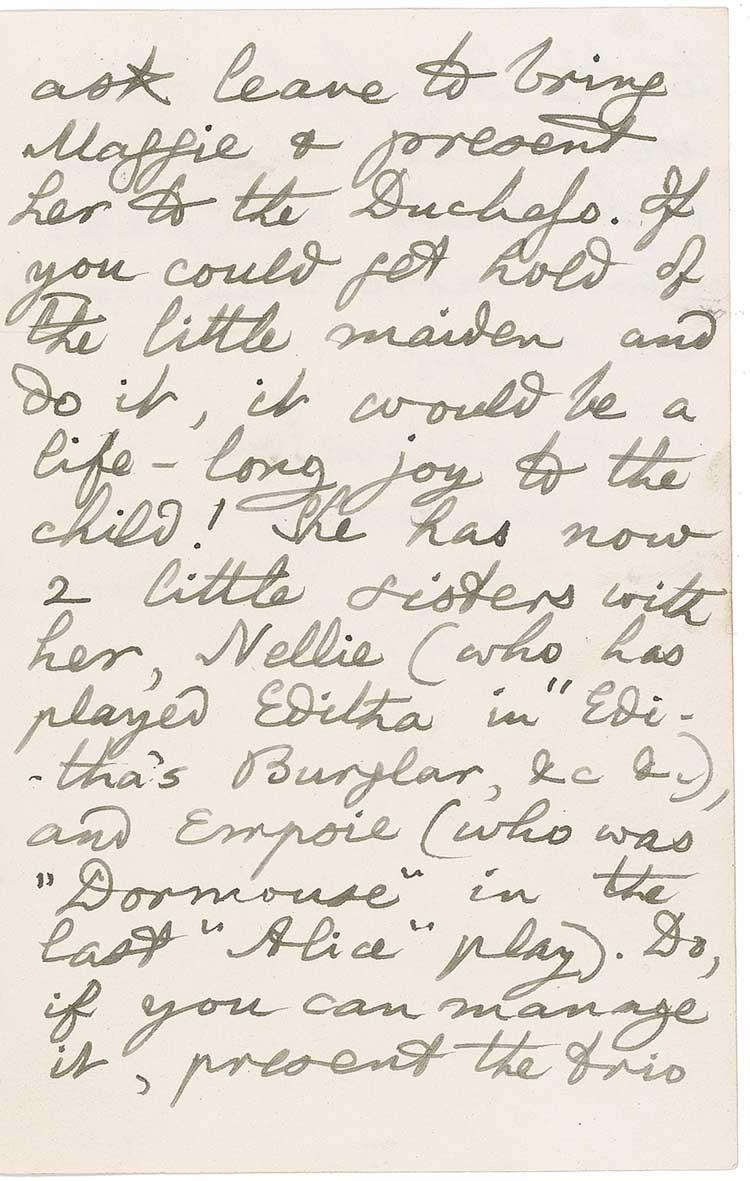 ask leave to bring
Maggie & present
her to the Duchess. If
you could get hold of
the little maiden and
do it, it would be a
life-long joy to the
child! She has now
2 little sisters with
her, Nellie (who has
played Editha in "Edi-
-tha's Burglar, &c &.),
and Empsie (who was
"Dormouse" in the
last "Alice" play). Do,
if you can manage
it, present the trio